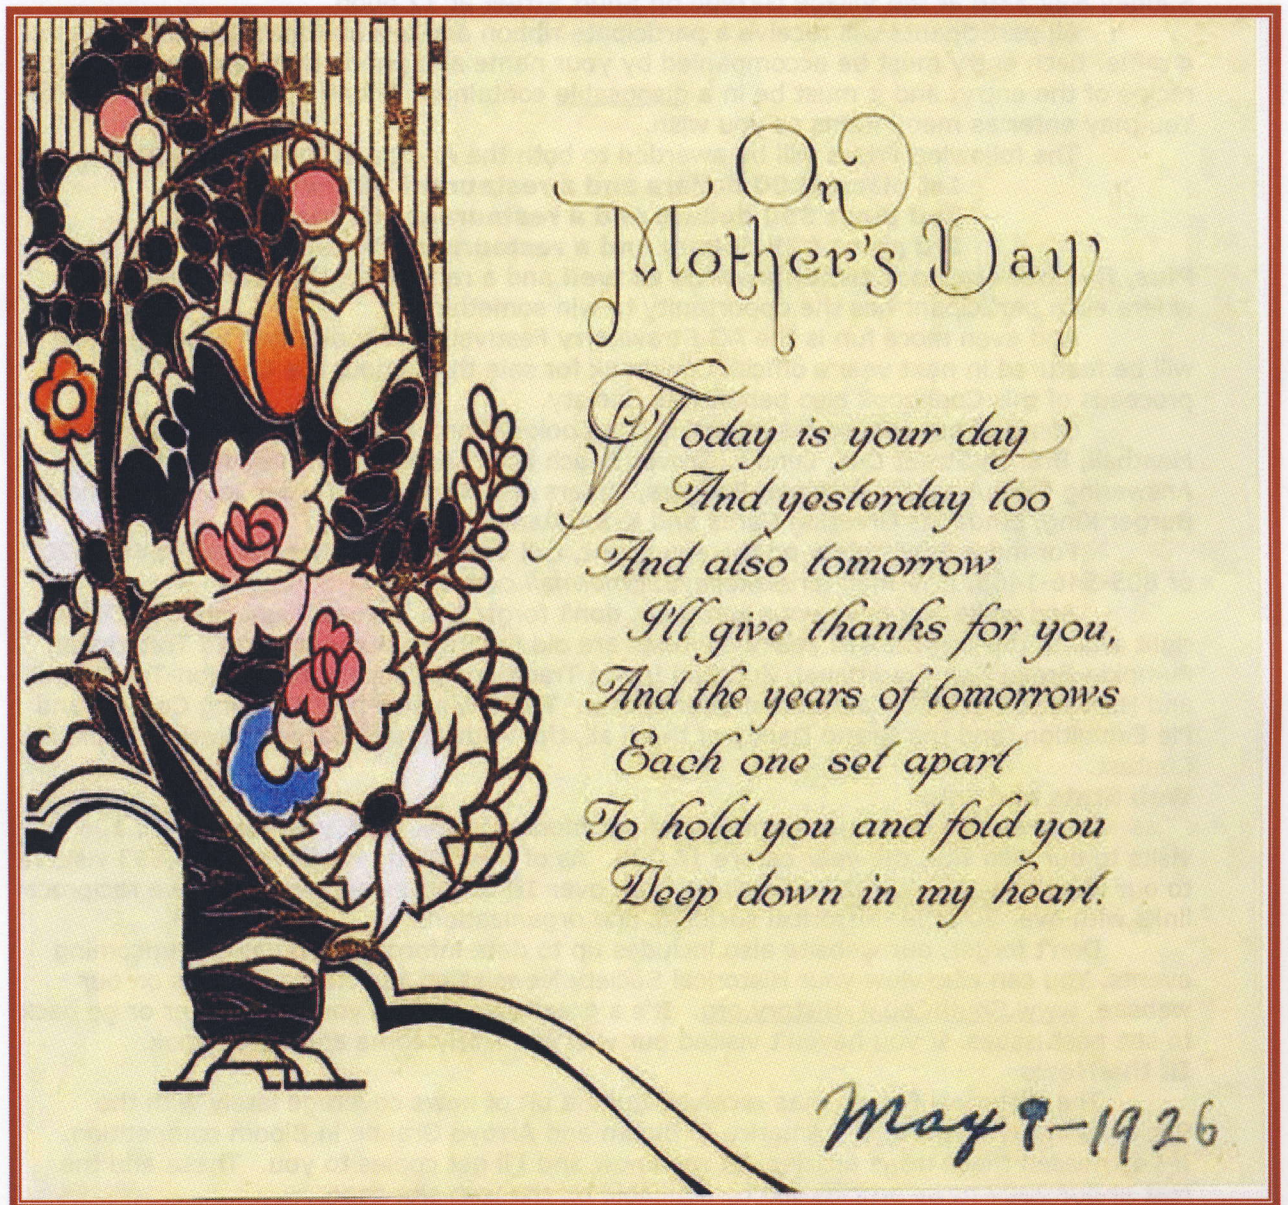 On
Mother's Day
Today is your day
And yesterday too
And also tomorrow
I'll give thanks for you,
And the years of tomorrows
Each one set apart
To hold you and fold you
Deep down in my heart.
May 9-1926